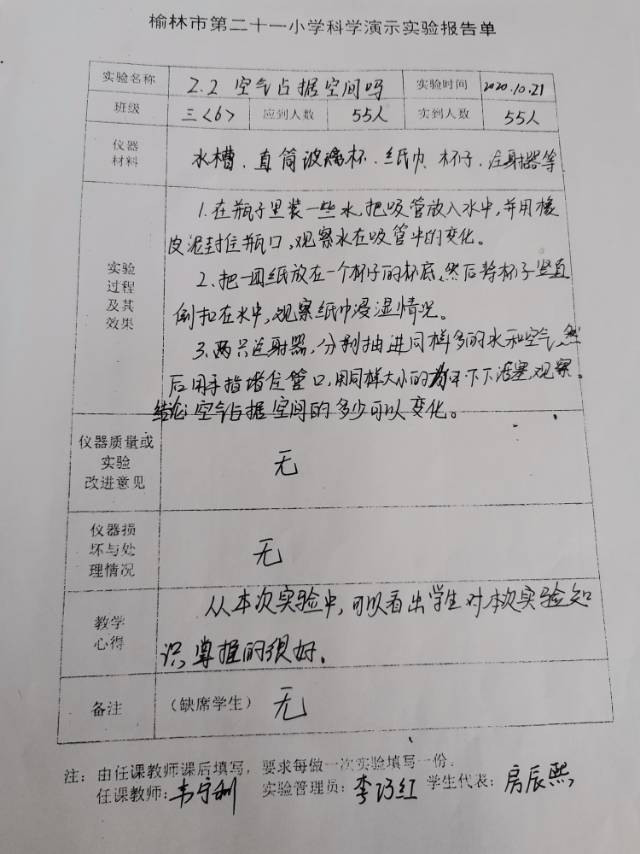 榆林市第二十一小学科学演示实验报告单
实验名称 2.2 空气占据空间吗 实验时间 2020.10.21
班级 三<6> 应到人数 55人 实到人数 55人
仪器
材料
水槽、直筒玻璃杯、纸巾、杯子、注射器等
实验
过程
及其
效果
1.在瓶子里装一些水,把吸管放入水中,并用橡
皮泥封住瓶口,观察水在吸管中的变化。
2.把一团纸放在一个杯子的杯底,然后将杯子竖直
倒扣在水中,观察纸巾浸湿情况。
3.两只注射器,分别抽进同样多的水和空气,然
后用手指堵住管口,用同样大小的 下 活塞,观察。
结论:空气占据空间的多少可以变化。
仪器质量或
实验
改进意见
无
仪器损
坏与处
理情况
无
教学
心得
从本次实验中,可以看出学生对本次实验知
识掌握的很好。
备注 (缺席学生) 无
注:由任课教师课后填写,要求每做一次实验填写一份。
任课教师: 实验管理员:李巧红 学生代表:房辰熙